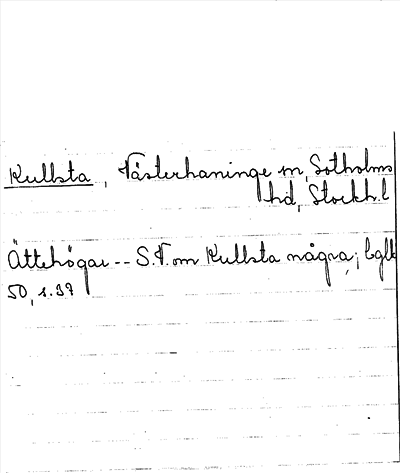 Kullsta, Västerhaninge sn, Sotholms
hd, Stockh. l
Ättehögar -- S.V. om Kullsta några; bgll
50, s. 37